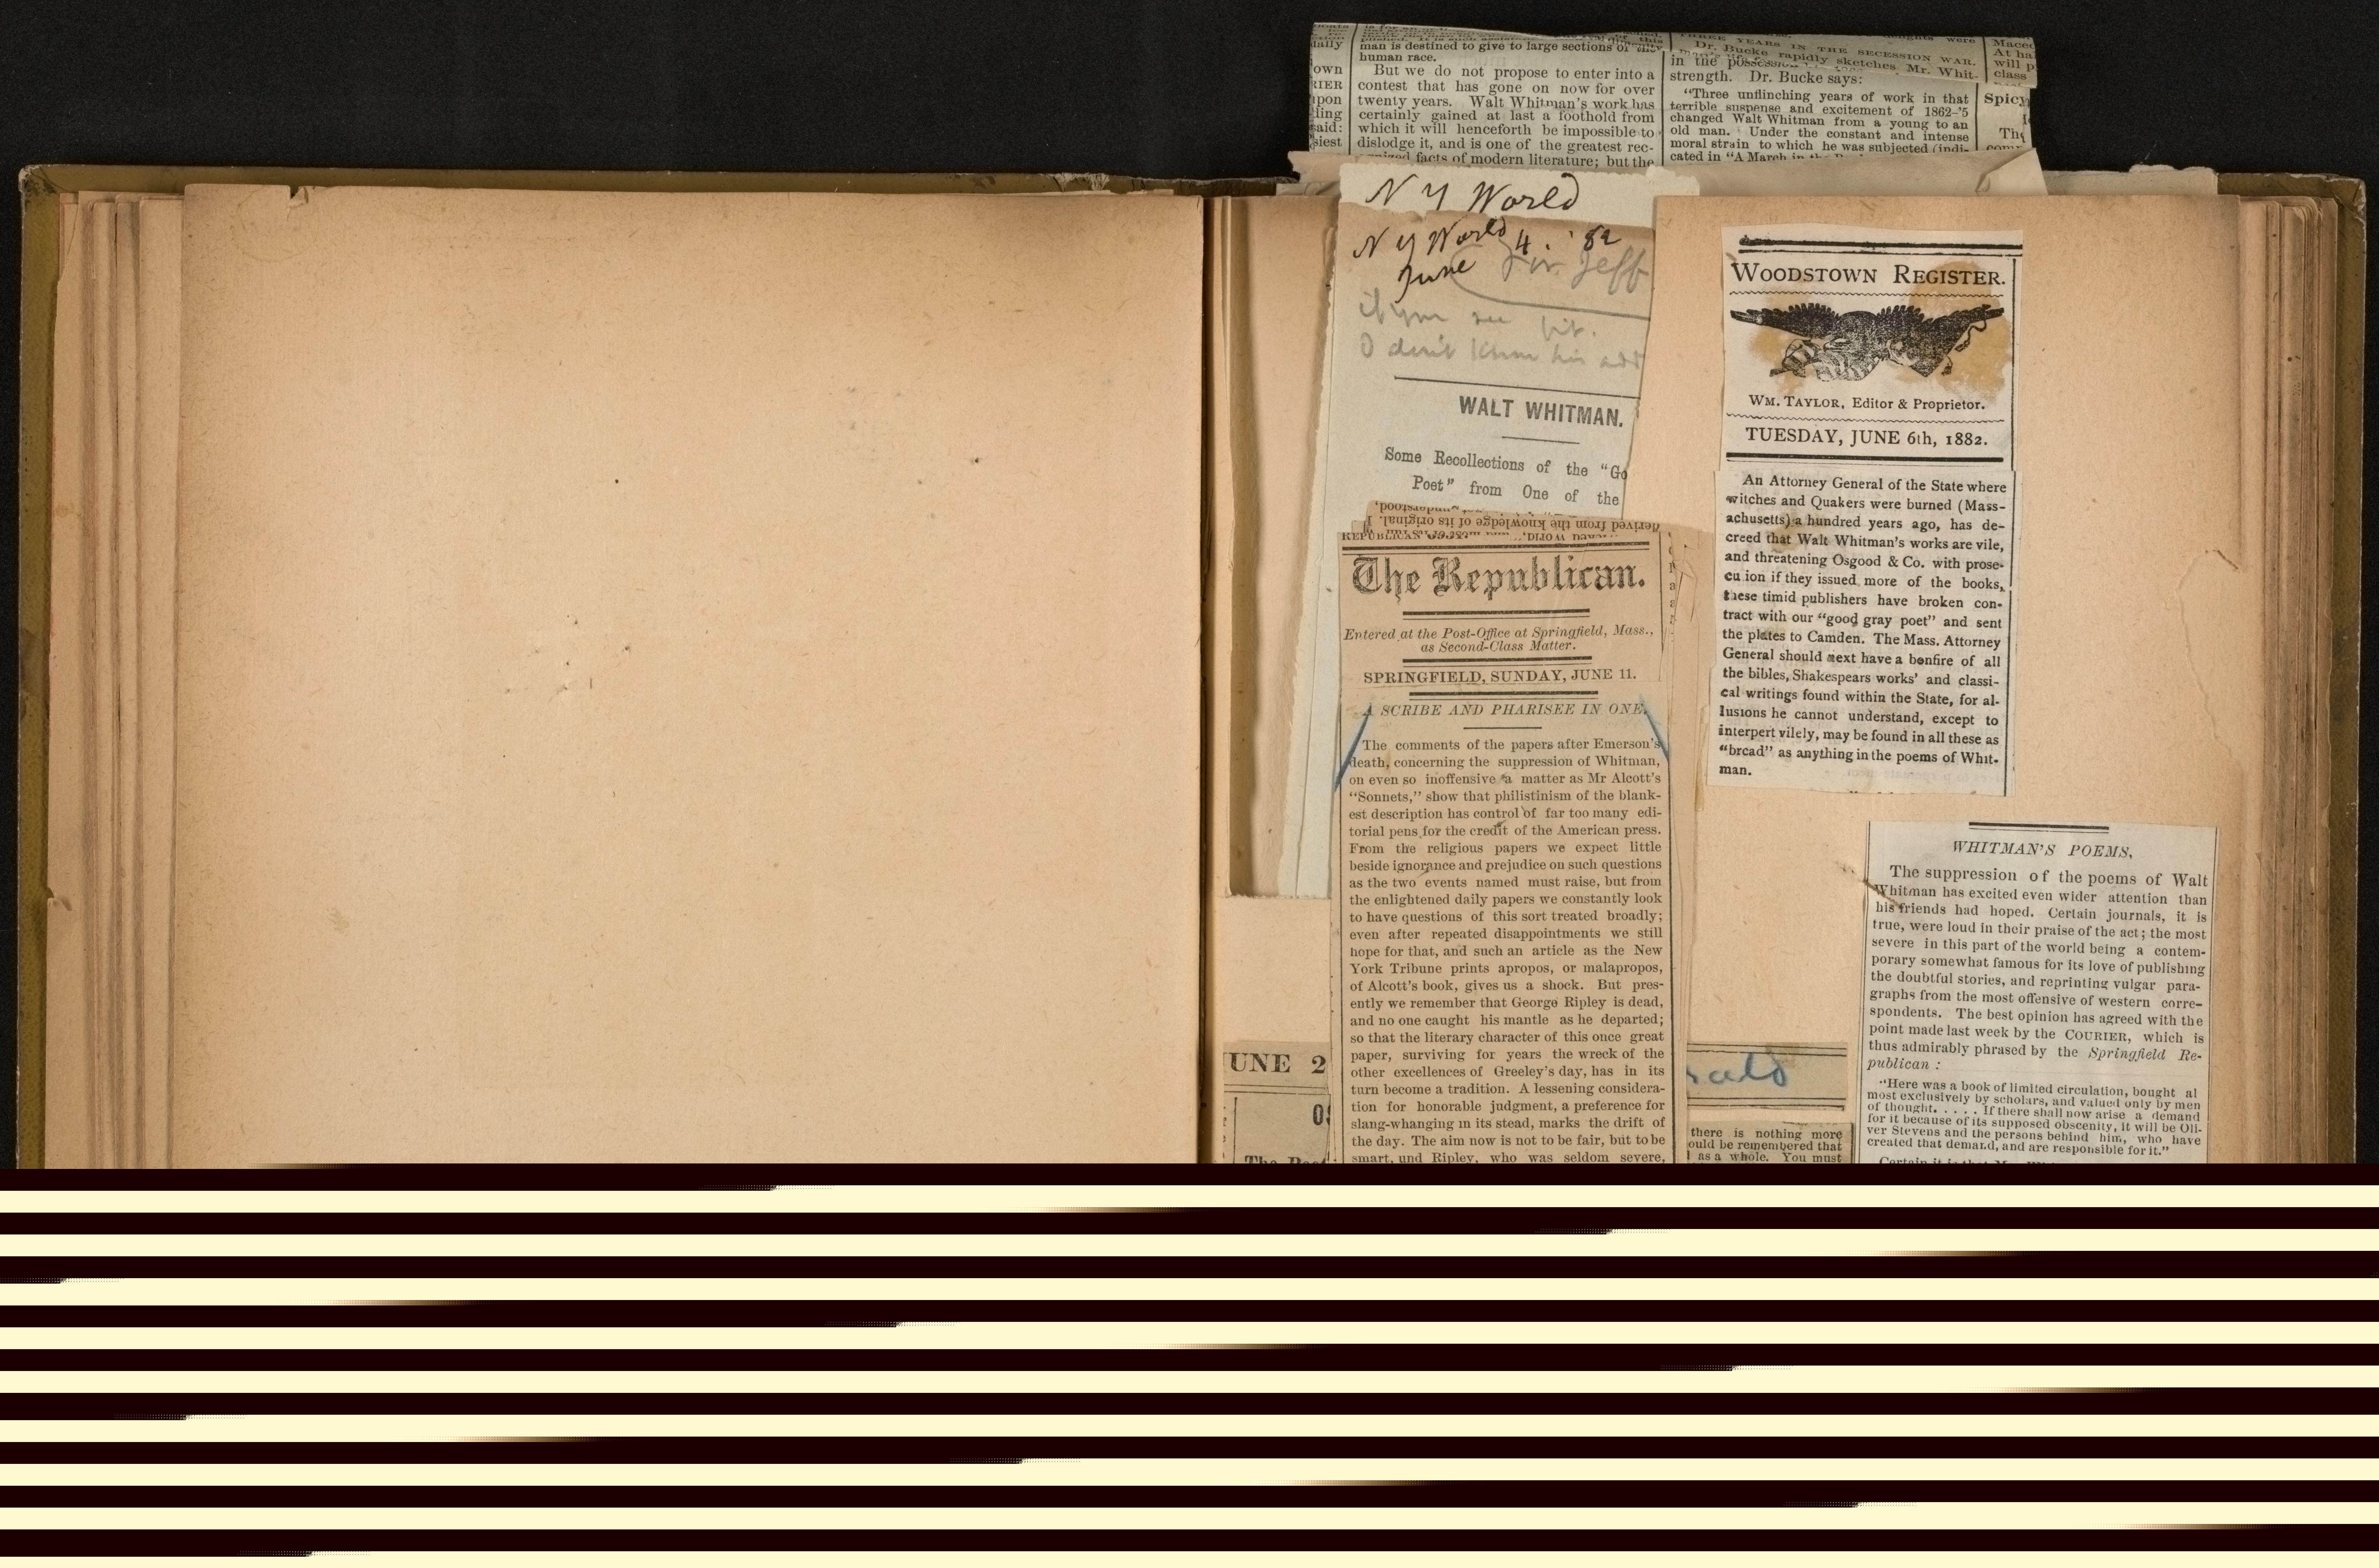 man is destined to give to large sections of
human race.
But we do not propose to enter into a
contest that has gone on now for over
twenty years. Walt Whitman's work has
certainly gained at last a foothold from
which it will henceforth be impossible to
dislodge it, and is one of the greatest rec-
facts of modern literature; but the
THREE YEARS IN THE SECESSION WAR.
Dr. Bucke rapidly sketches Mr. Whit-
in the
strength. Dr. Bucke says:
"Three unflinching years of work in that
terrible suspense and excitement of 1862-'5
changed Walt Whitman from a young to an
old man. Under the constant and intense
moral strain to which he was subjected (indi-
cated in "A March in the
At ha
will p
class
Spicy
daily
own
RIER
upon
ding
said:
siest
N Y World
N Y World
June 4. '82
for Jeff
if you see fit.
I don't know his add
WALT WHITMAN.
Some Recollections of the "Go
Poet" from One of the
derived from the knowledge of its original. I
The Republican.
Entered at the Post-Office at Springfield, Mass.,
as Second-Class Matter.
SPRINGFIELD, SUNDAY, JUNE 11.
A SCRIBE AND PHARISEE IN ONE.
The comments of the papers after Emerson's
death, concerning the suppression of Whitman,
on even so inoffensive a matter as Mr Alcott's
"Sonnets," show that philistinism of the blank-
est description has control of far too many edi-
torial pens for the credit of the American press.
From the religious papers we expect little
beside ignorance and prejudice on such questions
as the two events named must raise, but from
the enlightened daily papers we constantly look
to have questions of this sort treated broadly;
even after repeated disappointments we still
hope for that, and such an article as the New
York Tribune prints apropos, or malapropos,
of Alcott's book, gives us a shock. But pres-
ently we remember that George Ripley is dead,
and no one caught his mantle as he departed;
so that the literary character of this once great
paper, surviving for years the wreck of the
other excellences of Greeley's day, has in its
turn become a tradition. A lessening considera-
tion for honorable judgment, a preference for
slang-whanging in its stead, marks the drift of
the day. The aim now is not to be fair, but to be
smart, und Ripley, who was seldom severe,
UNE 2
WOODSTOWN REGISTER.
WM. TAYLOR, Editor & Proprietor.
TUESDAY, JUNE 6th, 1882.
An Attorney General of the State where
witches and Quakers were burned (Mass-
achusetts) a hundred years ago, has de-
creed that Walt Whitman's works are vile,
and threatening Osgood & Co. with prose-
cu ion if they issued more of the books,
these timid publishers have broken con-
tract with our "good gray poet" and sent
the plates to Camden. The Mass. Attorney
General should next have a bonfire of all
the bibles, Shakespears works' and classi-
cal writings found within the State, for al-
lusions he cannot understand, except to
interpert vilely, may be found in all these as
"broad" as anything in the poems of Whit-
man.
there is nothing more
ould be remembered that
as a whole. You must
WHITMAN'S POEMS,
The suppression of the poems of Walt
Whitman has excited even wider attention than
his friends had hoped. Certain journals, it is
true, were loud in their praise of the act; the most
severe in this part of the world being a contem-
porary somewhat famous for its love of publishing
the doubtful stories, and reprinting vulgar para-
graphs from the most offensive of western corre-
spondents. The best opinion has agreed with the
point made last week by the COURIER, which is
thus admirably phrased by the Springfield Re-
publican:
"Here was a book of limited circulation, bought al
most exclusively by scholars, and valued only by men
of thought. . . . . If there shall now arise a demand
for it because of its supposed obscenity, it will be Oli-
ver Stevens and the persons behind him, who have
created that demand, and are responsible for it."